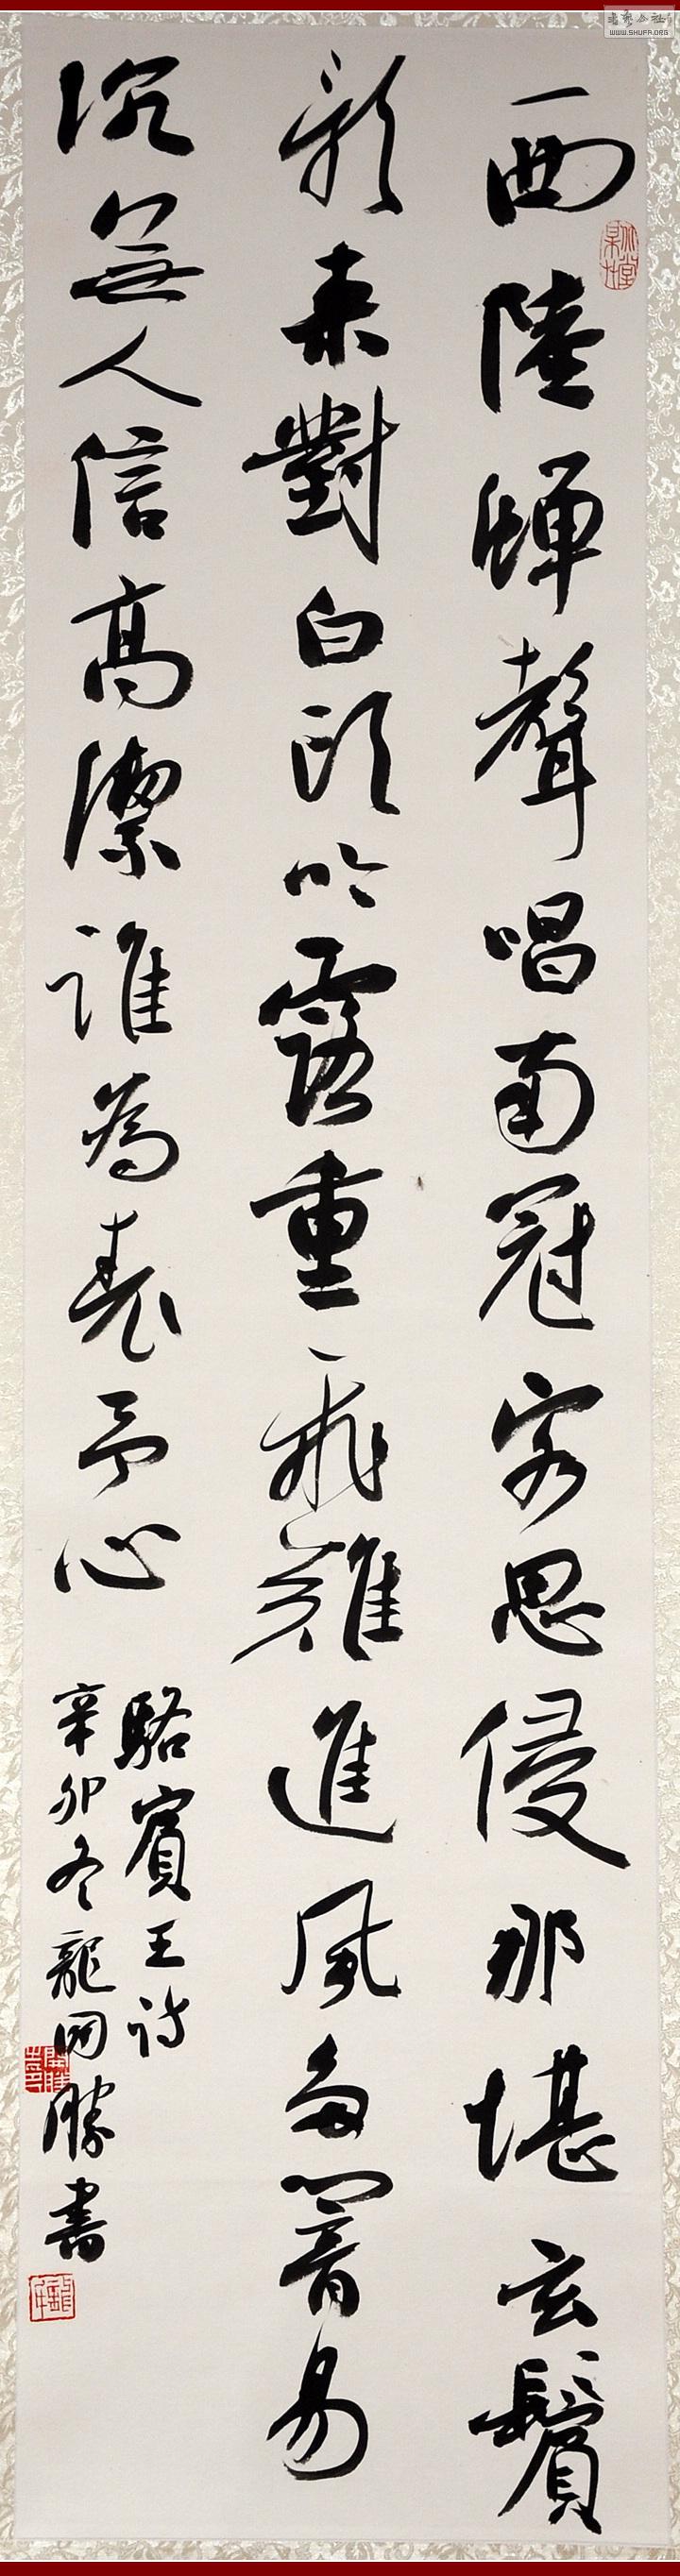 西陸蟬聲唱南冠客思侵那堪玄鬢
影来對白頭吟露重飛難進風多響易
沉無人信高潔誰為表予心
駱賓王詩
辛卯冬龍開勝書
书艺公社
WWW.SHUFA.ORG